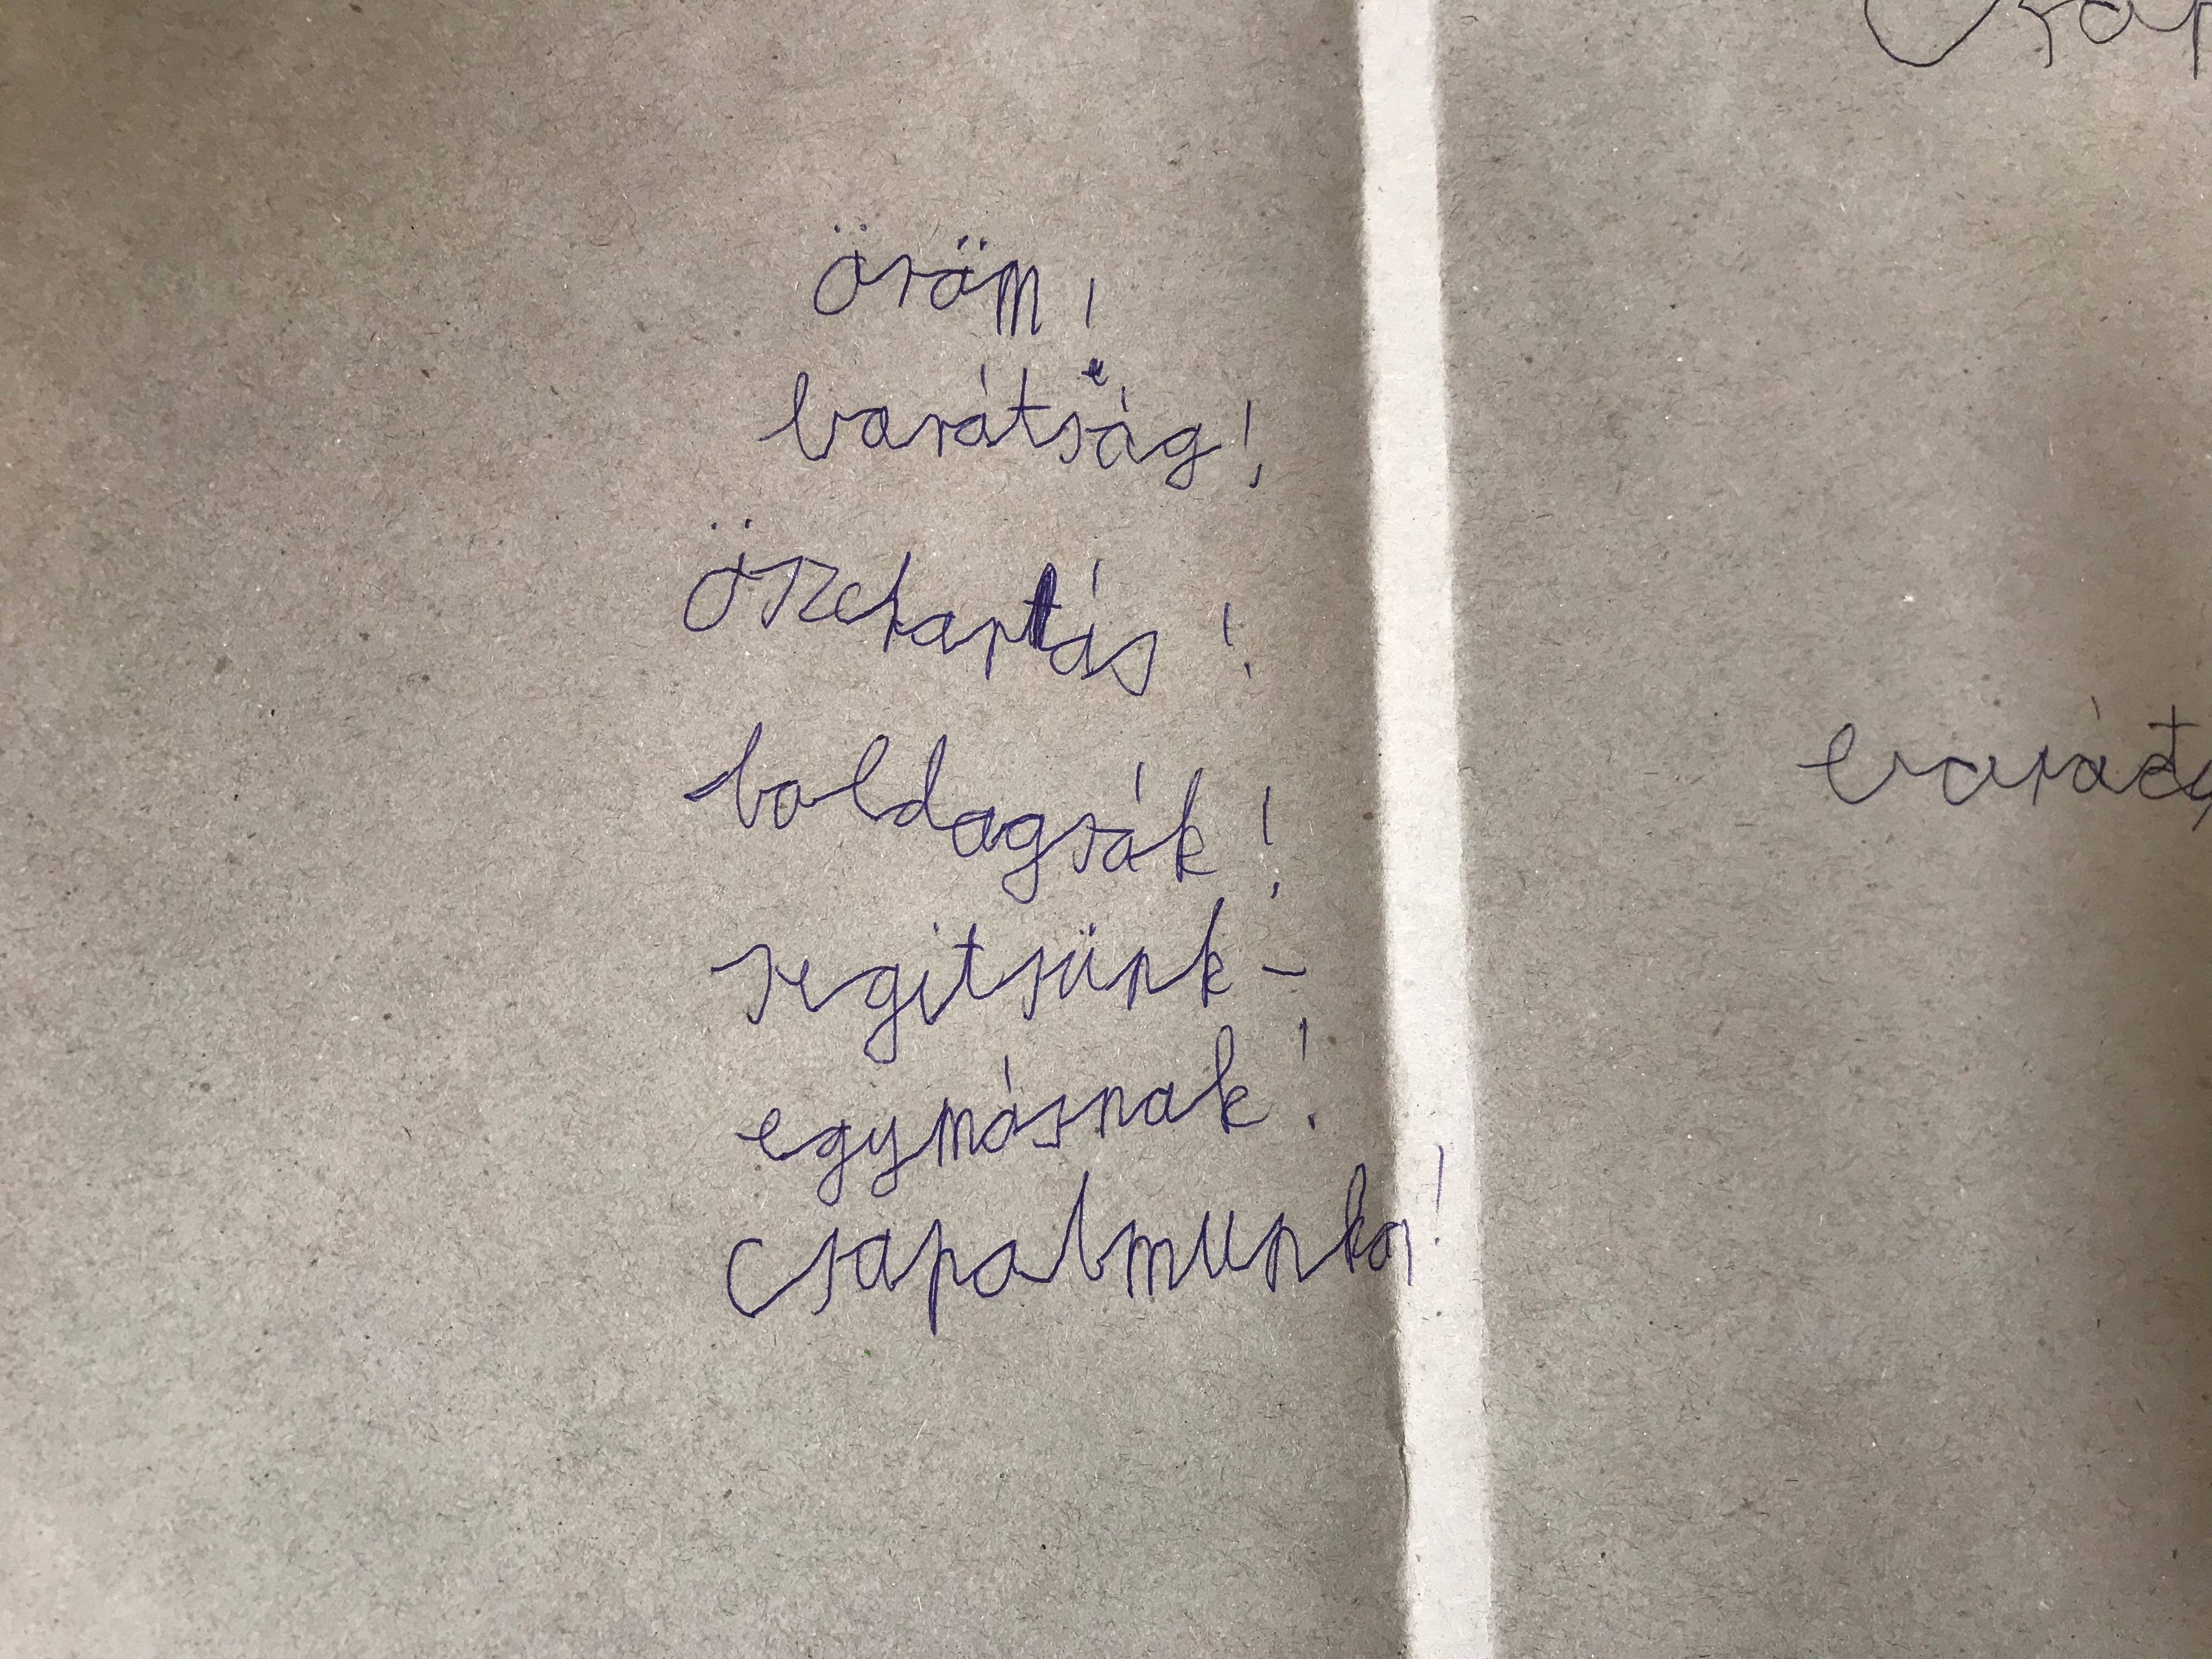 öröm!
barátság!
öszetartás!
boldogsák!
segitsünk-
egymásnak!
csapatmunka!
Csap
barát